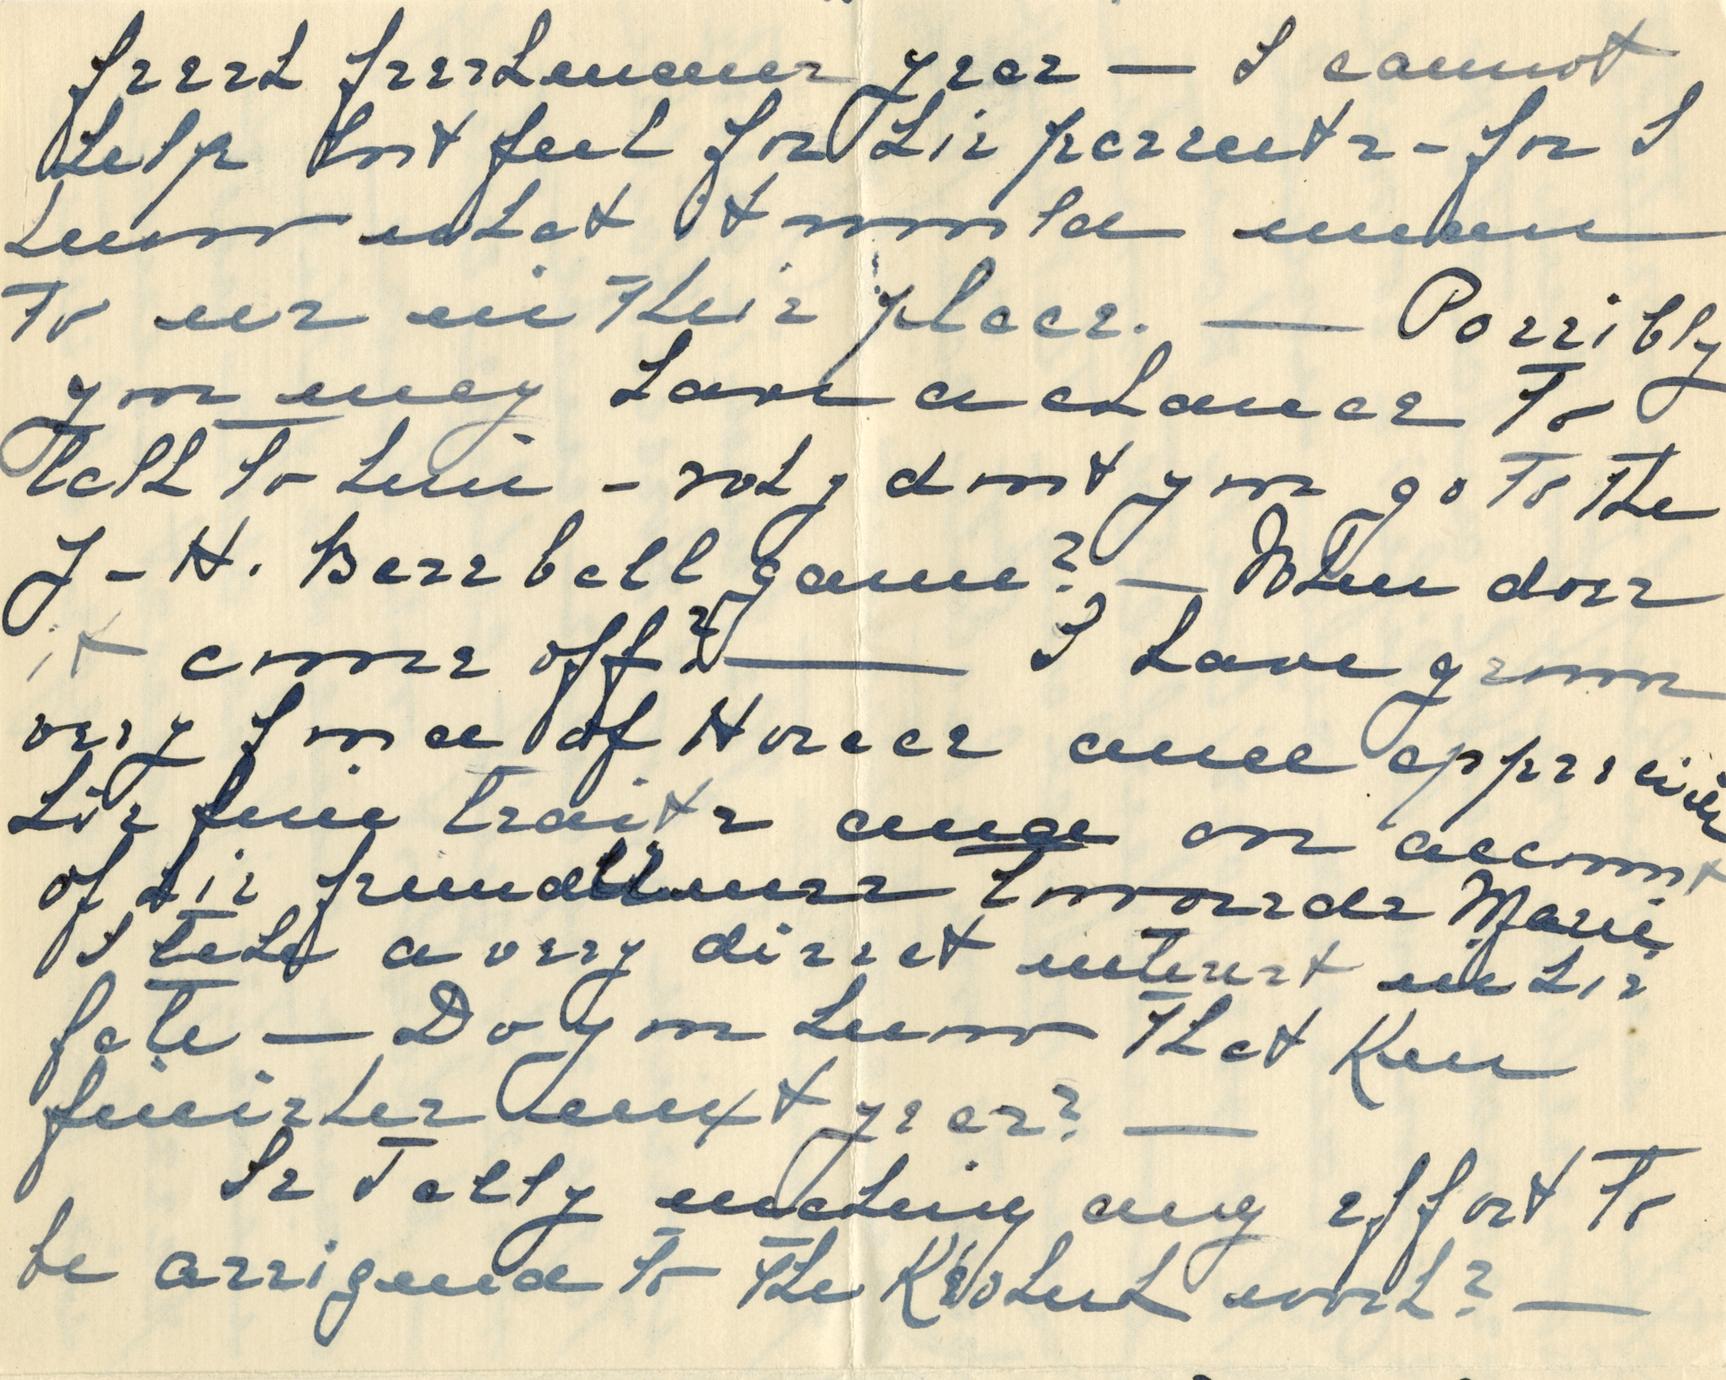 fresh freshman year — I cannot
help but feel for his parents - for I
know what it would mean
to me in their place. — Possibly
you may have a chance to
talk to him - why don't you go to the
Y - H. Baseball game? — When does
it come off? — I have grown
very fond of Horace and appreciate
his fine traits and on account
of his friendliness towards Marie
I take a very direct interest in his
fate — Do you know that Ken
finishes next year? —
Is Tally making any effort to
be assigned to the work? —